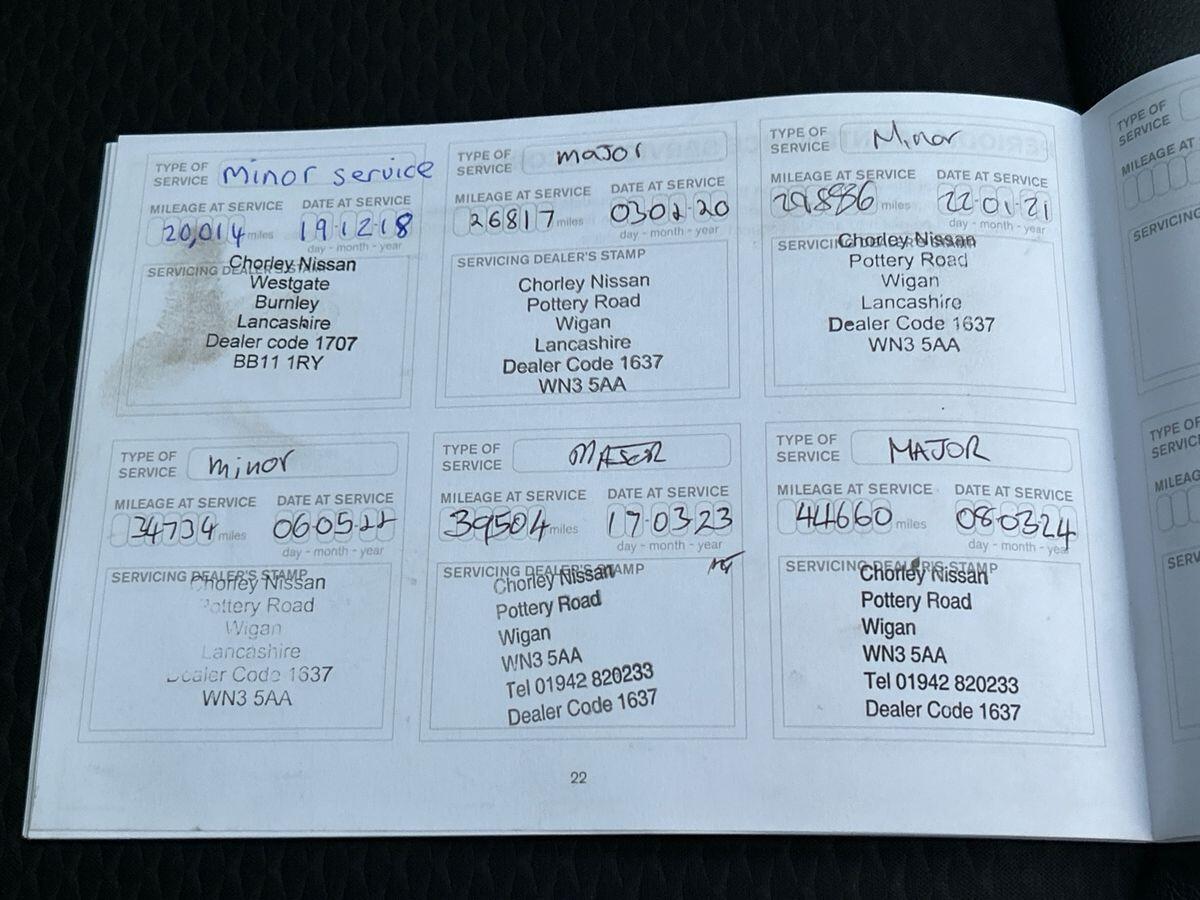 TYPE OF SERVICE Minor service
MILEAGE AT SERVICE DATE AT SERVICE
20,014 miles 19-12-18
day - month - year
SERVICING DEALER'S STAMP
Chorley Nissan
Westgate
Burnley
Lancashire
Dealer code 1707
BB11 1RY
TYPE OF SERVICE major
MILEAGE AT SERVICE DATE AT SERVICE
26817 miles 030220
day - month - year
SERVICING DEALER'S STAMP
Chorley Nissan
Pottery Road
Wigan
Lancashire
Dealer Code 1637
WN3 5AA
TYPE OF SERVICE Minor
MILEAGE AT SERVICE DATE AT SERVICE
miles 22-01-21
day - month - year
SERVICING DEALER'S STAMP
Chorley Nissan
Pottery Road
Wigan
Lancashire
Dealer Code 1637
WN3 5AA
TYPE OF SERVICE minor
MILEAGE AT SERVICE DATE AT SERVICE
34734 miles 060522
day - month - year
SERVICING DEALER'S STAMP
Chorley Nissan
Pottery Road
Wigan
Lancashire
Dealer Code 1637
WN3 5AA
TYPE OF SERVICE
MILEAGE AT SERVICE DATE AT SERVICE
39504 miles 17-0323
day - month - year
SERVICING DEALER'S STAMP
Chorley Nissan
Pottery Road
Wigan
WN3 5AA
Tel 01942 820233
Dealer Code 1637
TYPE OF SERVICE MAJOR
MILEAGE AT SERVICE DATE AT SERVICE
44660 miles 080324
day - month - year
SERVICING DEALER'S STAMP
Chorley Nissan
Pottery Road
Wigan
WN3 5AA
Tel 01942 820233
Dealer Code 1637
22
TYPE OF
SERVICE
MILEAGE AT
SERVICING
TYPE OF
SERVICE
MILEAGE